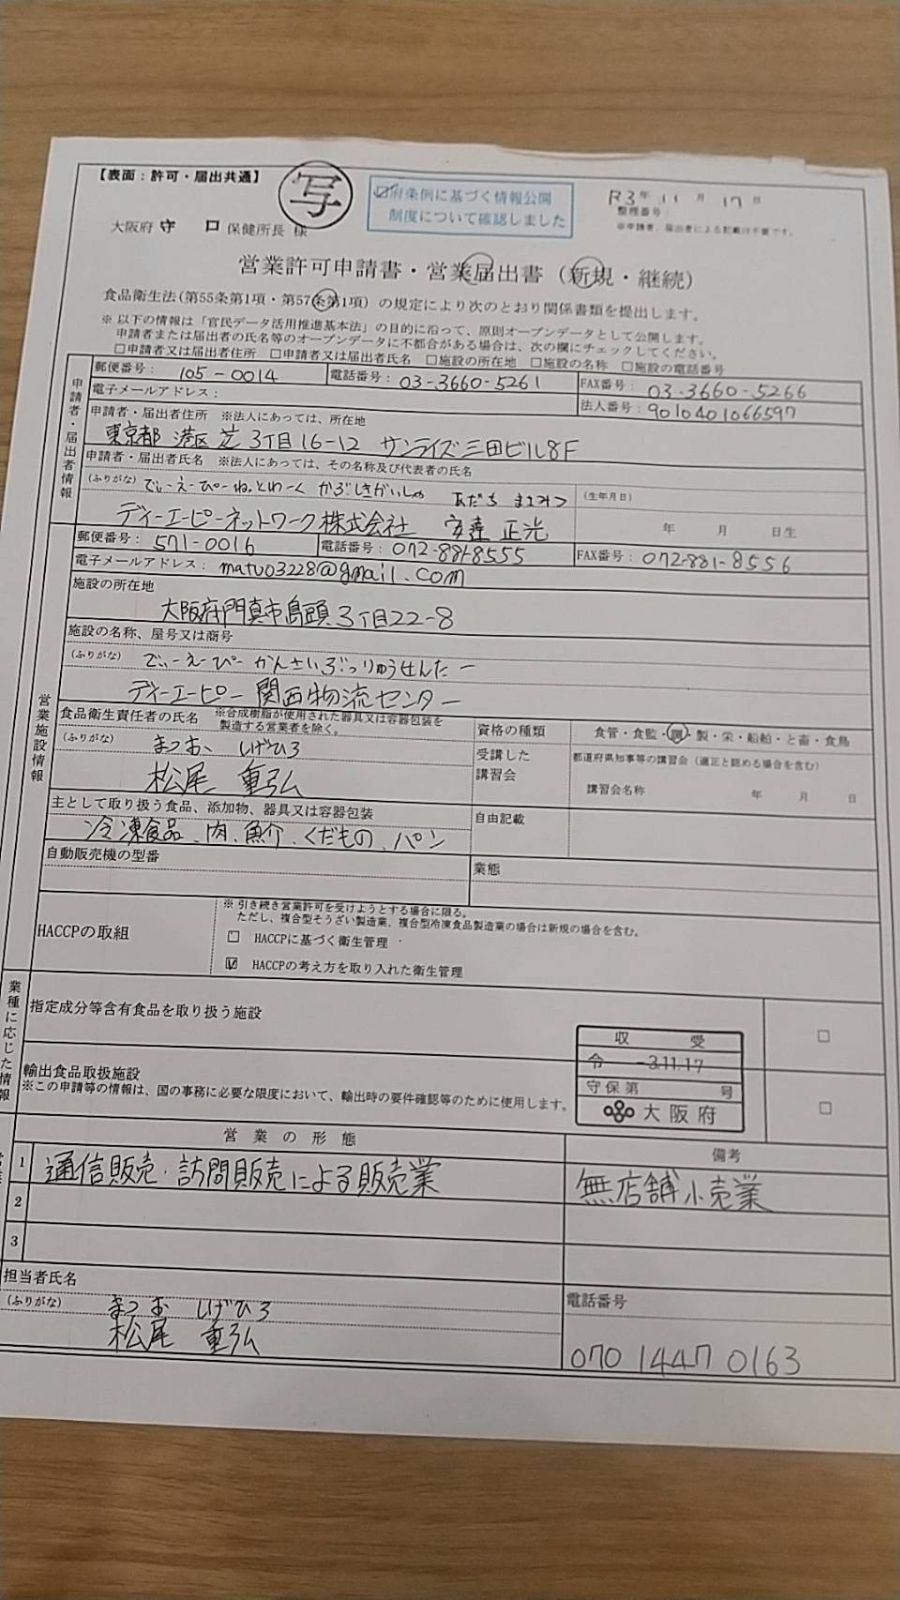 【表面：許可・届出共通】
写
府条例に基づく情報公開
制度について確認しました
R3年 11月 17日
整理番号：
※申請者、届出者による記載は不要です。
大阪府 守 口 保健所長 様
営業許可申請書・営業届出書（新規・継続）
食品衛生法(第55条第1項・第57条第1項）の規定により次のとおり関係書類を提出します。
※ 以下の情報は「官民データ活用推進基本法」の目的に沿って、原則オープンデータとして公開します。
申請者または届出者の氏名等のオープンデータに不都合がある場合は、次の欄にチェックしてください。
□申請者又は届出者住所 □申請者又は届出者氏名 □施設の所在地 □施設の名称 □施設の電話番号
申請者・届出者情報
郵便番号： 105-0014 電話番号： 03-3660-5261 FAX番号： 03-3660-5266
電子メールアドレス： 法人番号： 9010401066597
申請者・届出者住所 ※法人にあっては、所在地
東京都 港区 芝 3丁目16-12 サンライズ三田ビル8F
申請者・届出者氏名 ※法人にあっては、その名称及び代表者の氏名
(ふりがな) でぃーえーぴーねっとわーく かぶしきがいしゃ あだち まさみつ （生年月日）
ディーエーピーネットワーク株式会社 安達 正光 年 月 日生
営業施設情報
郵便番号： 571-0016 電話番号： 072-881-8555 FAX番号： 072-881-8556
電子メールアドレス： matuo3228@gmail.com
施設の所在地
大阪府門真市島頭3丁目22-8
施設の名称、屋号又は商号
(ふりがな) でぃーえーぴー かんさいぶつりゅうせんたー
ディーエーピー 関西物流センター
食品衛生責任者の氏名 ※合成樹脂が使用された器具又は容器包装を製造する営業者を除く。
(ふりがな) まつお しげひろ
松尾 重弘
資格の種類 食管・食監・調・製・栄・船舶・と畜・食鳥
受講した講習会 都道府県知事等の講習会（適正と認める場合を含む）
講習会名称 年 月 日
主として取り扱う食品、添加物、器具又は容器包装
冷凍食品、肉、魚介、くだもの、パン
自由記載
自動販売機の型番
業態
HACCPの取組
※ 引き続き営業許可を受けようとする場合に限る。
ただし、複合型そうざい製造業、複合型冷凍食品製造業の場合は新規の場合を含む。
□ HACCPに基づく衛生管理
☑ HACCPの考え方を取り入れた衛生管理
業種に応じた情報
指定成分等含有食品を取り扱う施設 □
輸出食品取扱施設 □
※この申請等の情報は、国の事務に必要な限度において、輸出時の要件確認等のために使用します。
収 受
令 -3.11.17
守保第 号
大阪府
営業の形態 備考
1 通信販売・訪問販売による販売業 無店舗小売業
2
3
担当者氏名
(ふりがな) まつお しげひろ
松尾 重弘
電話番号
070 1447 0163